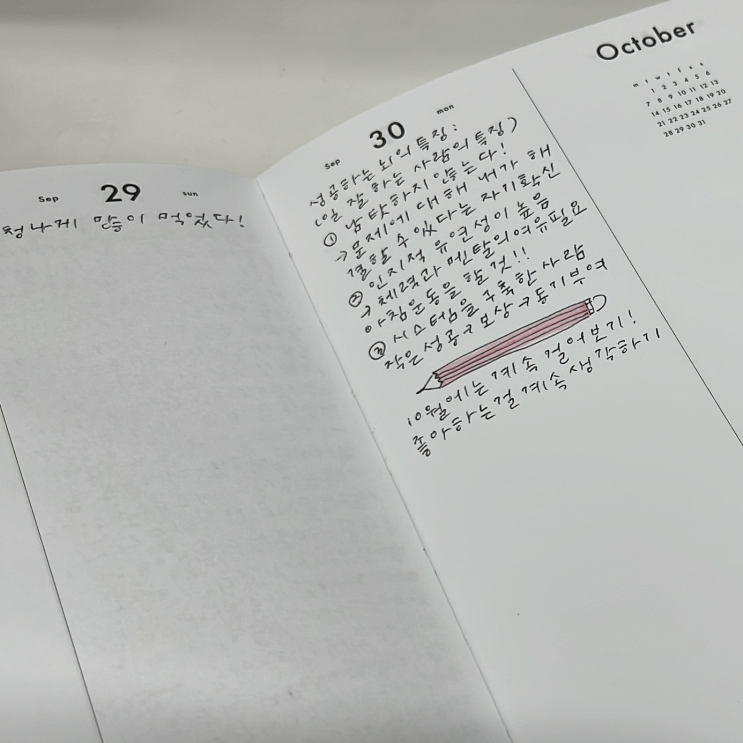 Sep 29 sun
청나게 많이 먹었다!
Sep 30 mon
성공하는 뇌의 특징:
(일 잘 하는 사람의 특징)
① 남탓하지 않는다!
→ 문제에 대해 내가 해
결할 수 있다는 자기확신
② 인지적 유연성이 높음
→ 체력과 멘탈의 여유필요
아침운동을 할 것!!
③ 시스템을 구축한 사람
작은 성공→보상→동기부여
10월에는 계속 걸어보기!
좋아하는걸 계속 생각하기
October
m t w t f s s
1 2 3 4 5 6
7 8 9 10 11 12 13
14 15 16 17 18 19 20
21 22 23 24 25 26 27
28 29 30 31